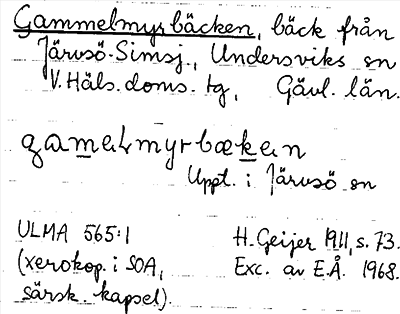 Gammelmyrbäcken, bäck från
Järvsö-Simsj., Undersviks sn
V. Häls. doms. tg, Gävl. län.
gamelmyrbækan
Uppt. i Järvsö sn
ULMA 565:1
(xerokop. i SOA,
särsk. kapsel).
H. Geijer 1911, s. 73.
Exc. av E.Å. 1968.